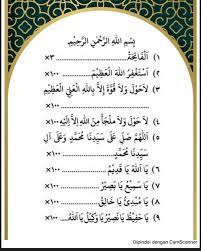 بِسْمِ اللهِ الرَّحْمٰنِ الرَّحِيْمِ
١) اَلْفَاتِحَةُ............................×٣
٢) اَسْتَغْفِرُ اللهَ الْعَظِيْمَ............×١٠٠
٣) لَاحَوْلَ وَلَا قُوَّةَ إِلَّا بِاللهِ الْعَلِيِّ الْعَظِيْمِ
×١٠٠
٤) لَاحَوْلَ وَلَا مَلْجَأَ مِنَ اللهِ إِلَّا إِلَيْهِ×١٠٠
٥) اَللّٰهُمَّ صَلِّ عَلَى سَيِّدِنَا مُحَمَّدٍ وَعَلَى آلِ
سَيِّدِنَا مُحَمَّدٍ................×١٠٠
٦) يَا اَللهُ يَا قَدِيْمُ................×١٠٠
٧) يَا سَمِيْعُ يَا بَصِيْرُ............×١٠٠
٨) يَا مُبْدِئُ يَا خَالِقُ............×١٠٠
٩) يَا حَفِيْظُ يَا نَصِيْرُ يَا وَكِيْلُ يَا اَللهُ...×١٠٠
Dipindai dengan CamScanner